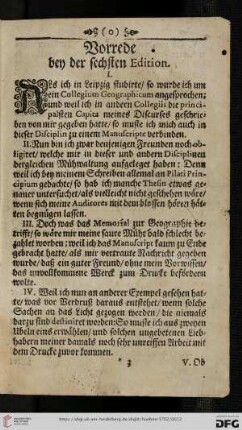 (o)
Vorrede
bey der sechsten Edition.
I.
Als ich in Leipzig studirte/ so wurde ich um
ein Collegium Geographicum angesprochen:
und weil ich in andern Collegiis die princi-
palsten Capita meines Discurses geschrie-
ben von mir gegeben hatte/ so muste ich mich auch in
dieser Disciplin zu einem Manuscripte verbinden.
II. Nun bin ich zwar denjenigen Freunden noch ob-
ligiret/ welche mir in dieser und andern Disciplinen
dergleichen Mühwaltung aufgeleget haben: Denn
weil ich bey meinem Schreiben allemal an Pilati Prin-
cipium gedachte/ so hab ich manche Thesin etwas ge-
nauer untersuchet/ als vielleicht nicht geschehen wäre/
wenn sich meine Auditores mit dem blossen hören hät-
ten begnügen lassen.
III. Doch was das Memorial zur Geographie be-
trifft/ so wäre mir meine saure Müh bald schlecht be-
zahlet worden: weil ich das Manuscript kaum zu Ende
gebracht hatte/ als mir vertraute Nachricht gegeben
wurde/ daß ein guter Freund/ ohne mein Vorwissen/
das unvollkommene Werck zum Drucke befördern
wolte.
IV. Weil ich nun an anderer Exempel gesehen hat-
te/ was vor Verdruß daraus entstehet/ wenn solche
Sachen an das Licht gezogen werden/ die niemals
darzu sind destiniret worden: So muste ich aus zweyen
Ubeln eins erwählen/ und solchen ungebetenen Lieb-
habern meiner damals noch sehr unreiffen Arbeit mit
dem Drucke zuvor kommen.
V. Ob
DFG